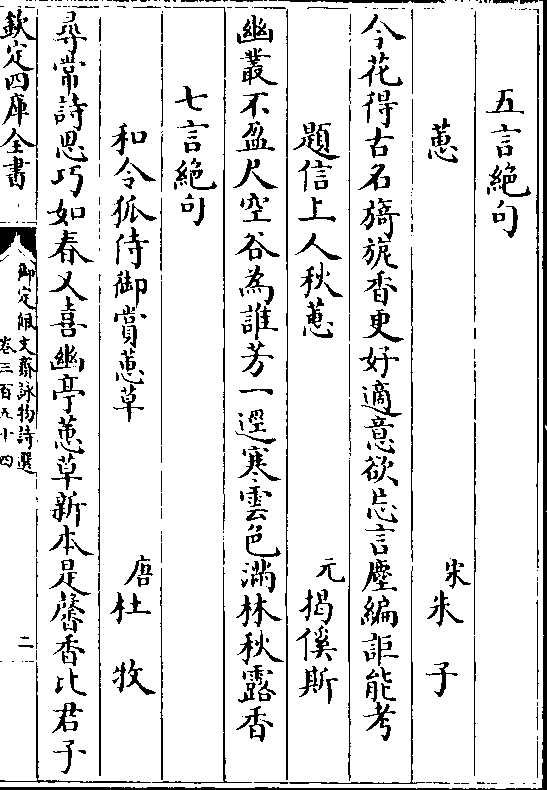 五言絶句
蕙　宋朱子
今花得古名旖旎香更好適意欲忘言塵編詎能考
題信上人秋蕙　元揭傒斯
幽叢不盈尺空谷為誰芳一逕寒雲色滿林秋露香
七言絶句
和令狐侍御賞蕙草　唐杜牧
尋常詩思巧如春又喜幽亭蕙草新本是馨香比君子
欽定四庫全書
御定佩文齋詠物詩選
卷三百五十四
二